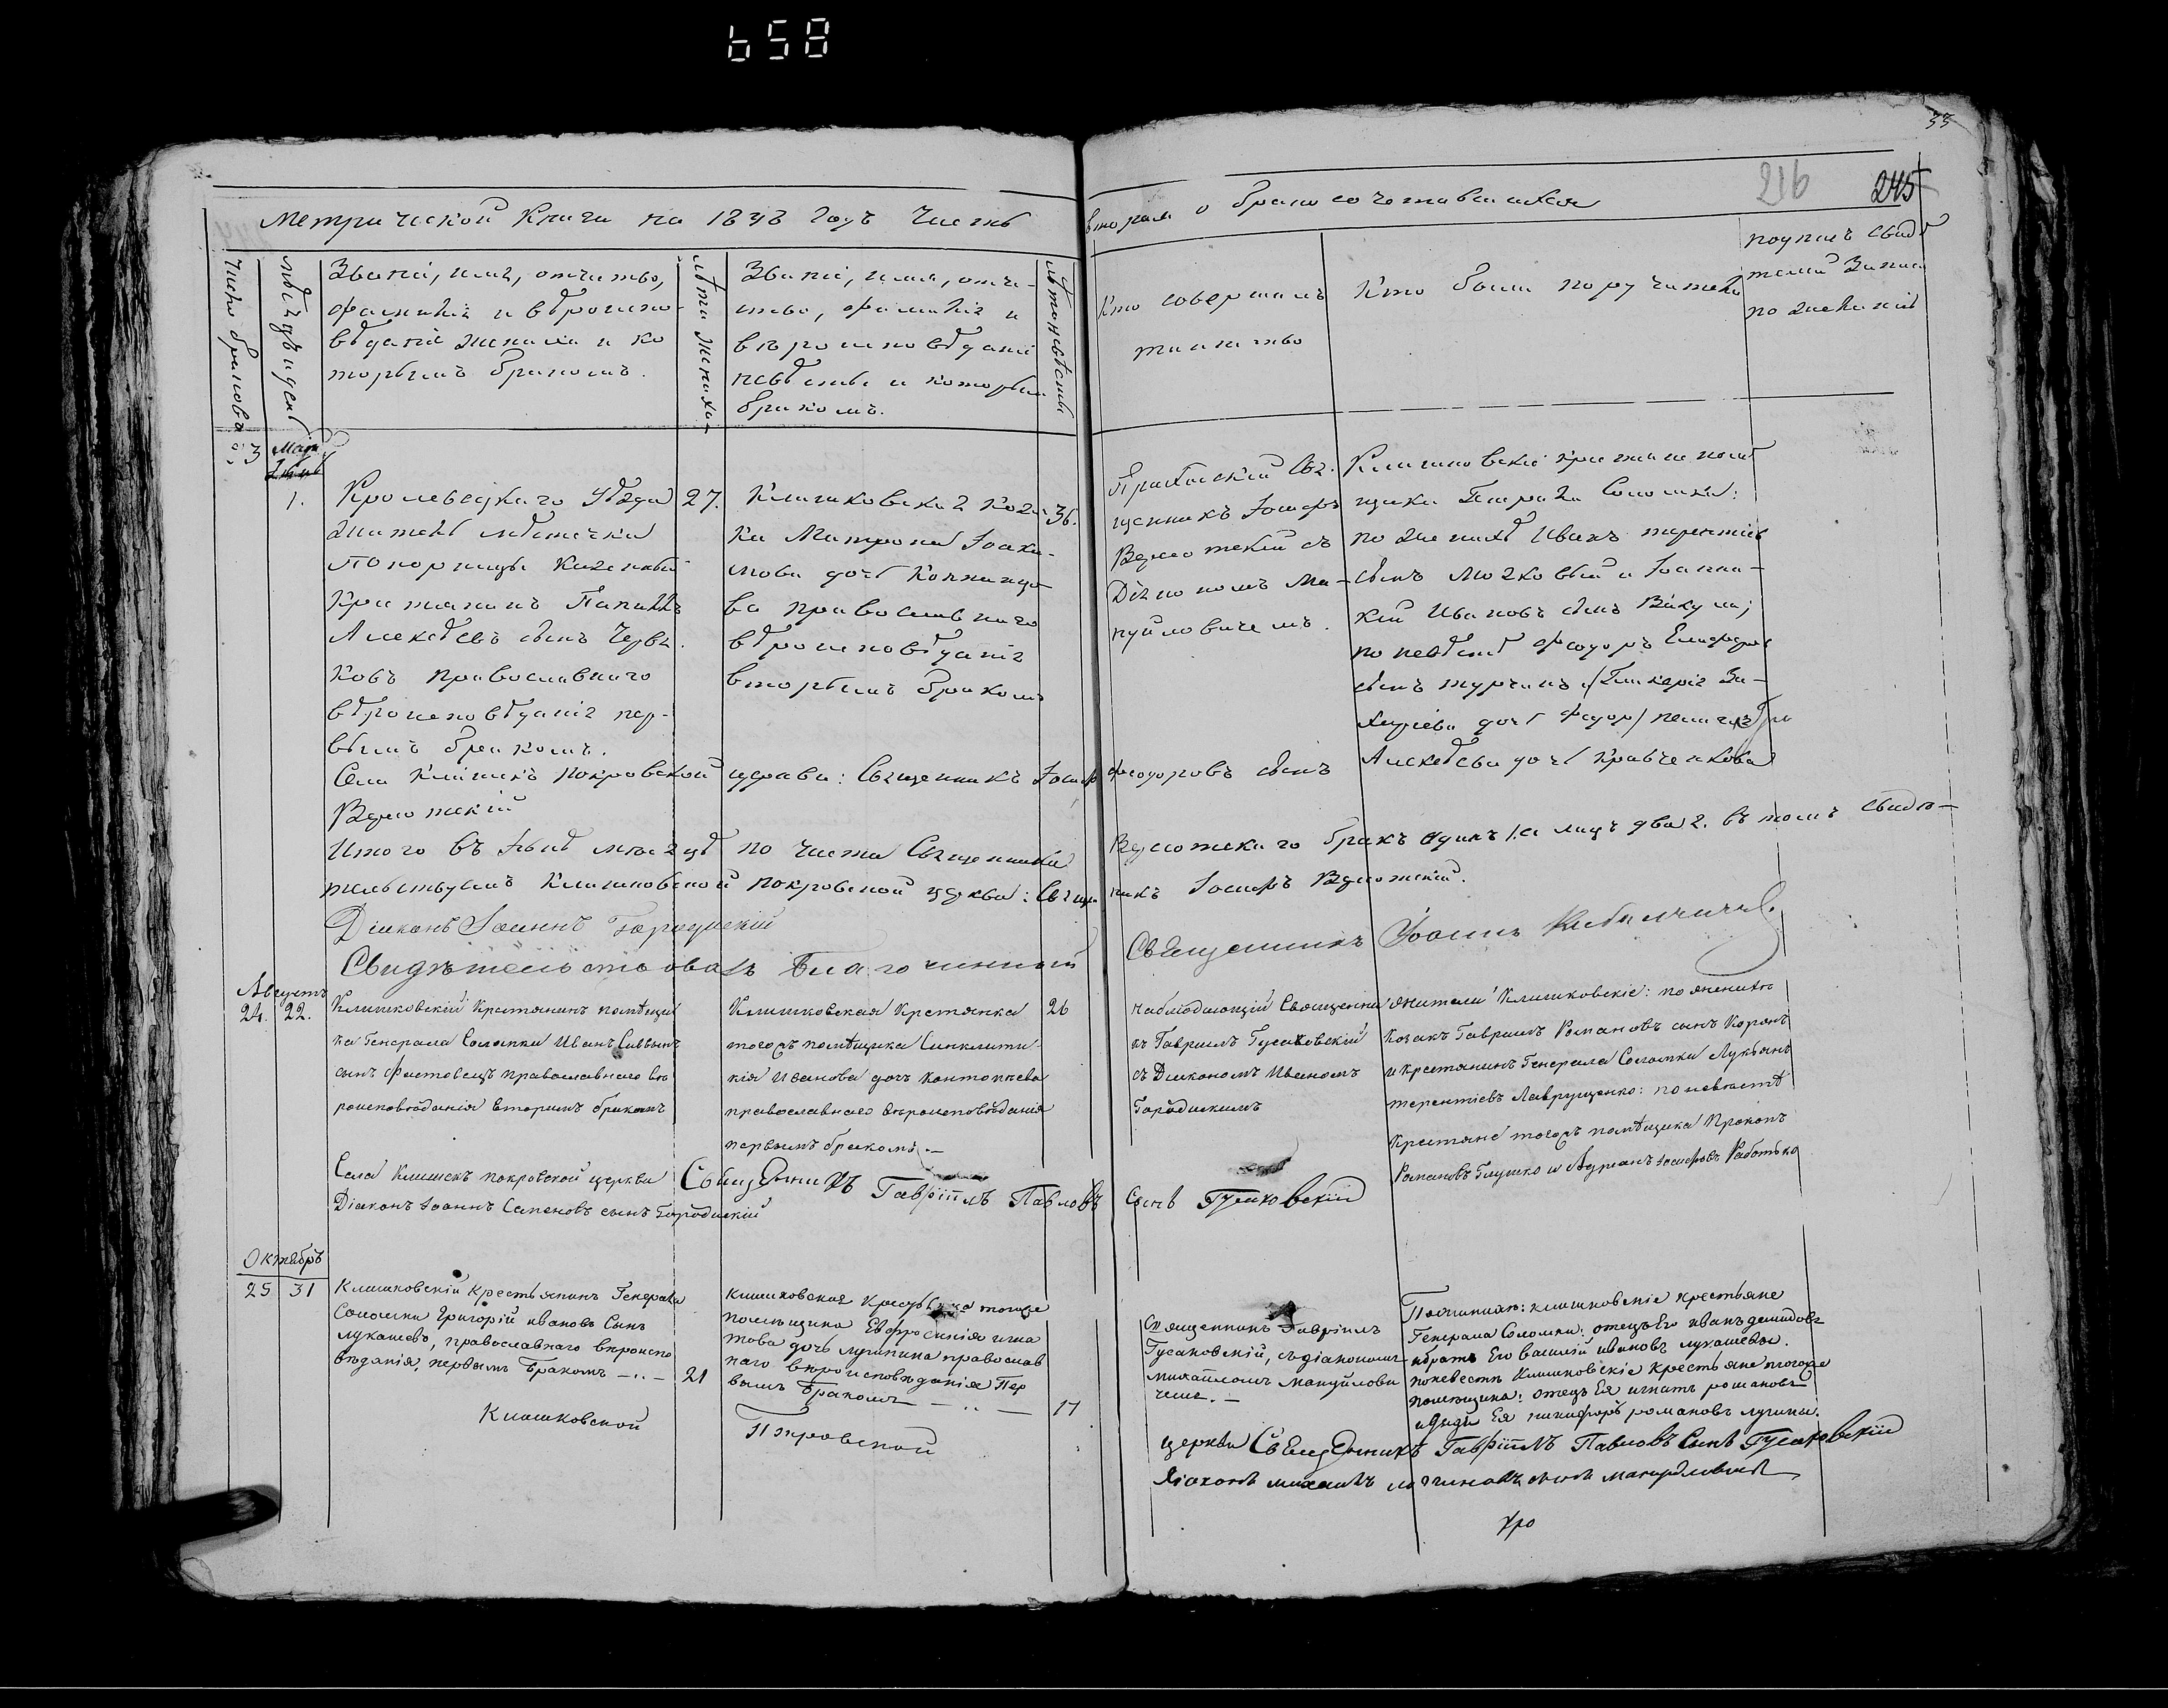 658
33
216 245
Метрической Книги на 1838 Годъ Часть
вторая о бракосочетавшихся
Число браковъ
Мѣсяцъ и день
Званіе, имя, отчество,
фамилія и вѣроиспо-
вѣданіе жениха и ко
торымъ бракомъ.
Лѣта жениха
Званіе, имя, отче-
ство, фамилія и
вѣроисповѣданіе
невѣсты и которымъ
бракомъ.
Лѣта невѣсты
Кто совершалъ
таинство
Кто были поручители
по желанію
23
1.
Кролевецкаго Уѣзда
житель мѣстечка
Понорницы Казенный
Крестьянинъ
Алексѣевъ сынъ Черв
ковъ православнаго
вѣроисповѣданія пер-
вымъ бракомъ.
27.
Клишковская Козач
ка Матрона Іоаки-
мова дочь
ва православнаго
вѣроисповѣданія
вторымъ бракомъ
36.
Приходскій Свя-
щенникъ Іосифъ
съ
Діакономъ Ма-
нуйловичемъ.
Клишковскіе крестьяне помѣ
щика Генерала Соломки:
по женихѣ Иванъ Терентіевъ
сынъ и Іоанни-
кій Ивановъ сынъ Вакула;
по невѣстѣ Феодоръ
сынъ Турчинъ и Гликерія За-
харіева дочь
Алексѣева дочь Кравченкова
Села Клишекъ Покровской церкви: Священникъ Іосифъ Феодоровъ сынъ
Итого въ мѣсяцѣ по части Священника бракъ одинъ 1. а лицъ два 2. въ томъ свидѣ-
тельствуемъ Клишковской Покровской церкви: Священникъ Іосифъ
Діаконъ Іоаннъ Городискій
Свидѣтельствовалъ Благочинный Священникъ Іоаннъ
Августъ
24. 22.
Клишковскій Крестьянинъ помѣщи
ка Генерала Соломки Иванъ Саввинъ
сынъ Фастовецъ православнаго вѣ
роисповѣданія вторымъ бракомъ
Клишковская Крестьянка
тогожъ помѣщика Синклити
кія Иванова дочь
православнаго вѣроисповѣданія
первымъ бракомъ.—
26
Наблюдающій Священни
къ Гавріилъ Гусаковскій
съ Діакономъ Иваномъ
Городискимъ
жители Клишковскіе: по женихѣ
Козакъ Гавріилъ Романовъ сынъ Коропъ
и крестьянинъ Генерала Соломки Лукьянъ
Терентіевъ Лаврущенко: по невѣстѣ
Крестьяне тогожъ помѣщика Прокопъ
Романовъ Глушко и Адріанъ Іосифовъ Работько
Села Клишекъ Покровской церкви Священникъ Гавріилъ Павловъ Сынъ Гусаковскій
Діаконъ Іоаннъ Семеновъ сынъ Городискій
Октябрь
25 31
Клишковскій Крестьянинъ Генерала
Соломки Григорій Ивановъ Сынъ
Лукашевъ, православнаго вѣроиспо
вѣданія, первымъ Бракомъ —..—
21
Клишковская Крестьянка тогоже
помѣщика Евфросинія Игна
това дочь Лучкина православ
наго вѣроисповѣданія Пер
вымъ Бракомъ —..—
17
Священникъ Гавріилъ
Гусаковскій, съ діакономъ
Михаиломъ Мануйлови
чемъ.—
По женихѣ: клишковскіе крестьяне
Генерала Соломки: отецъ Его Иванъ Демидовъ
и братъ Его Василій Ивановъ Лукашевы.
по невѣстѣ Клишковскіе Крестьяне тогоже
помѣщика: отецъ Ея Игнатъ Романовъ
и дядя Ея Никифоръ Романовъ Лучкины.
Клишковской Покровской церкви Священникъ Гавріилъ Павловъ Сынъ Гусаковскій
Діаконъ Михаилъ сынъ Мануйловичъ